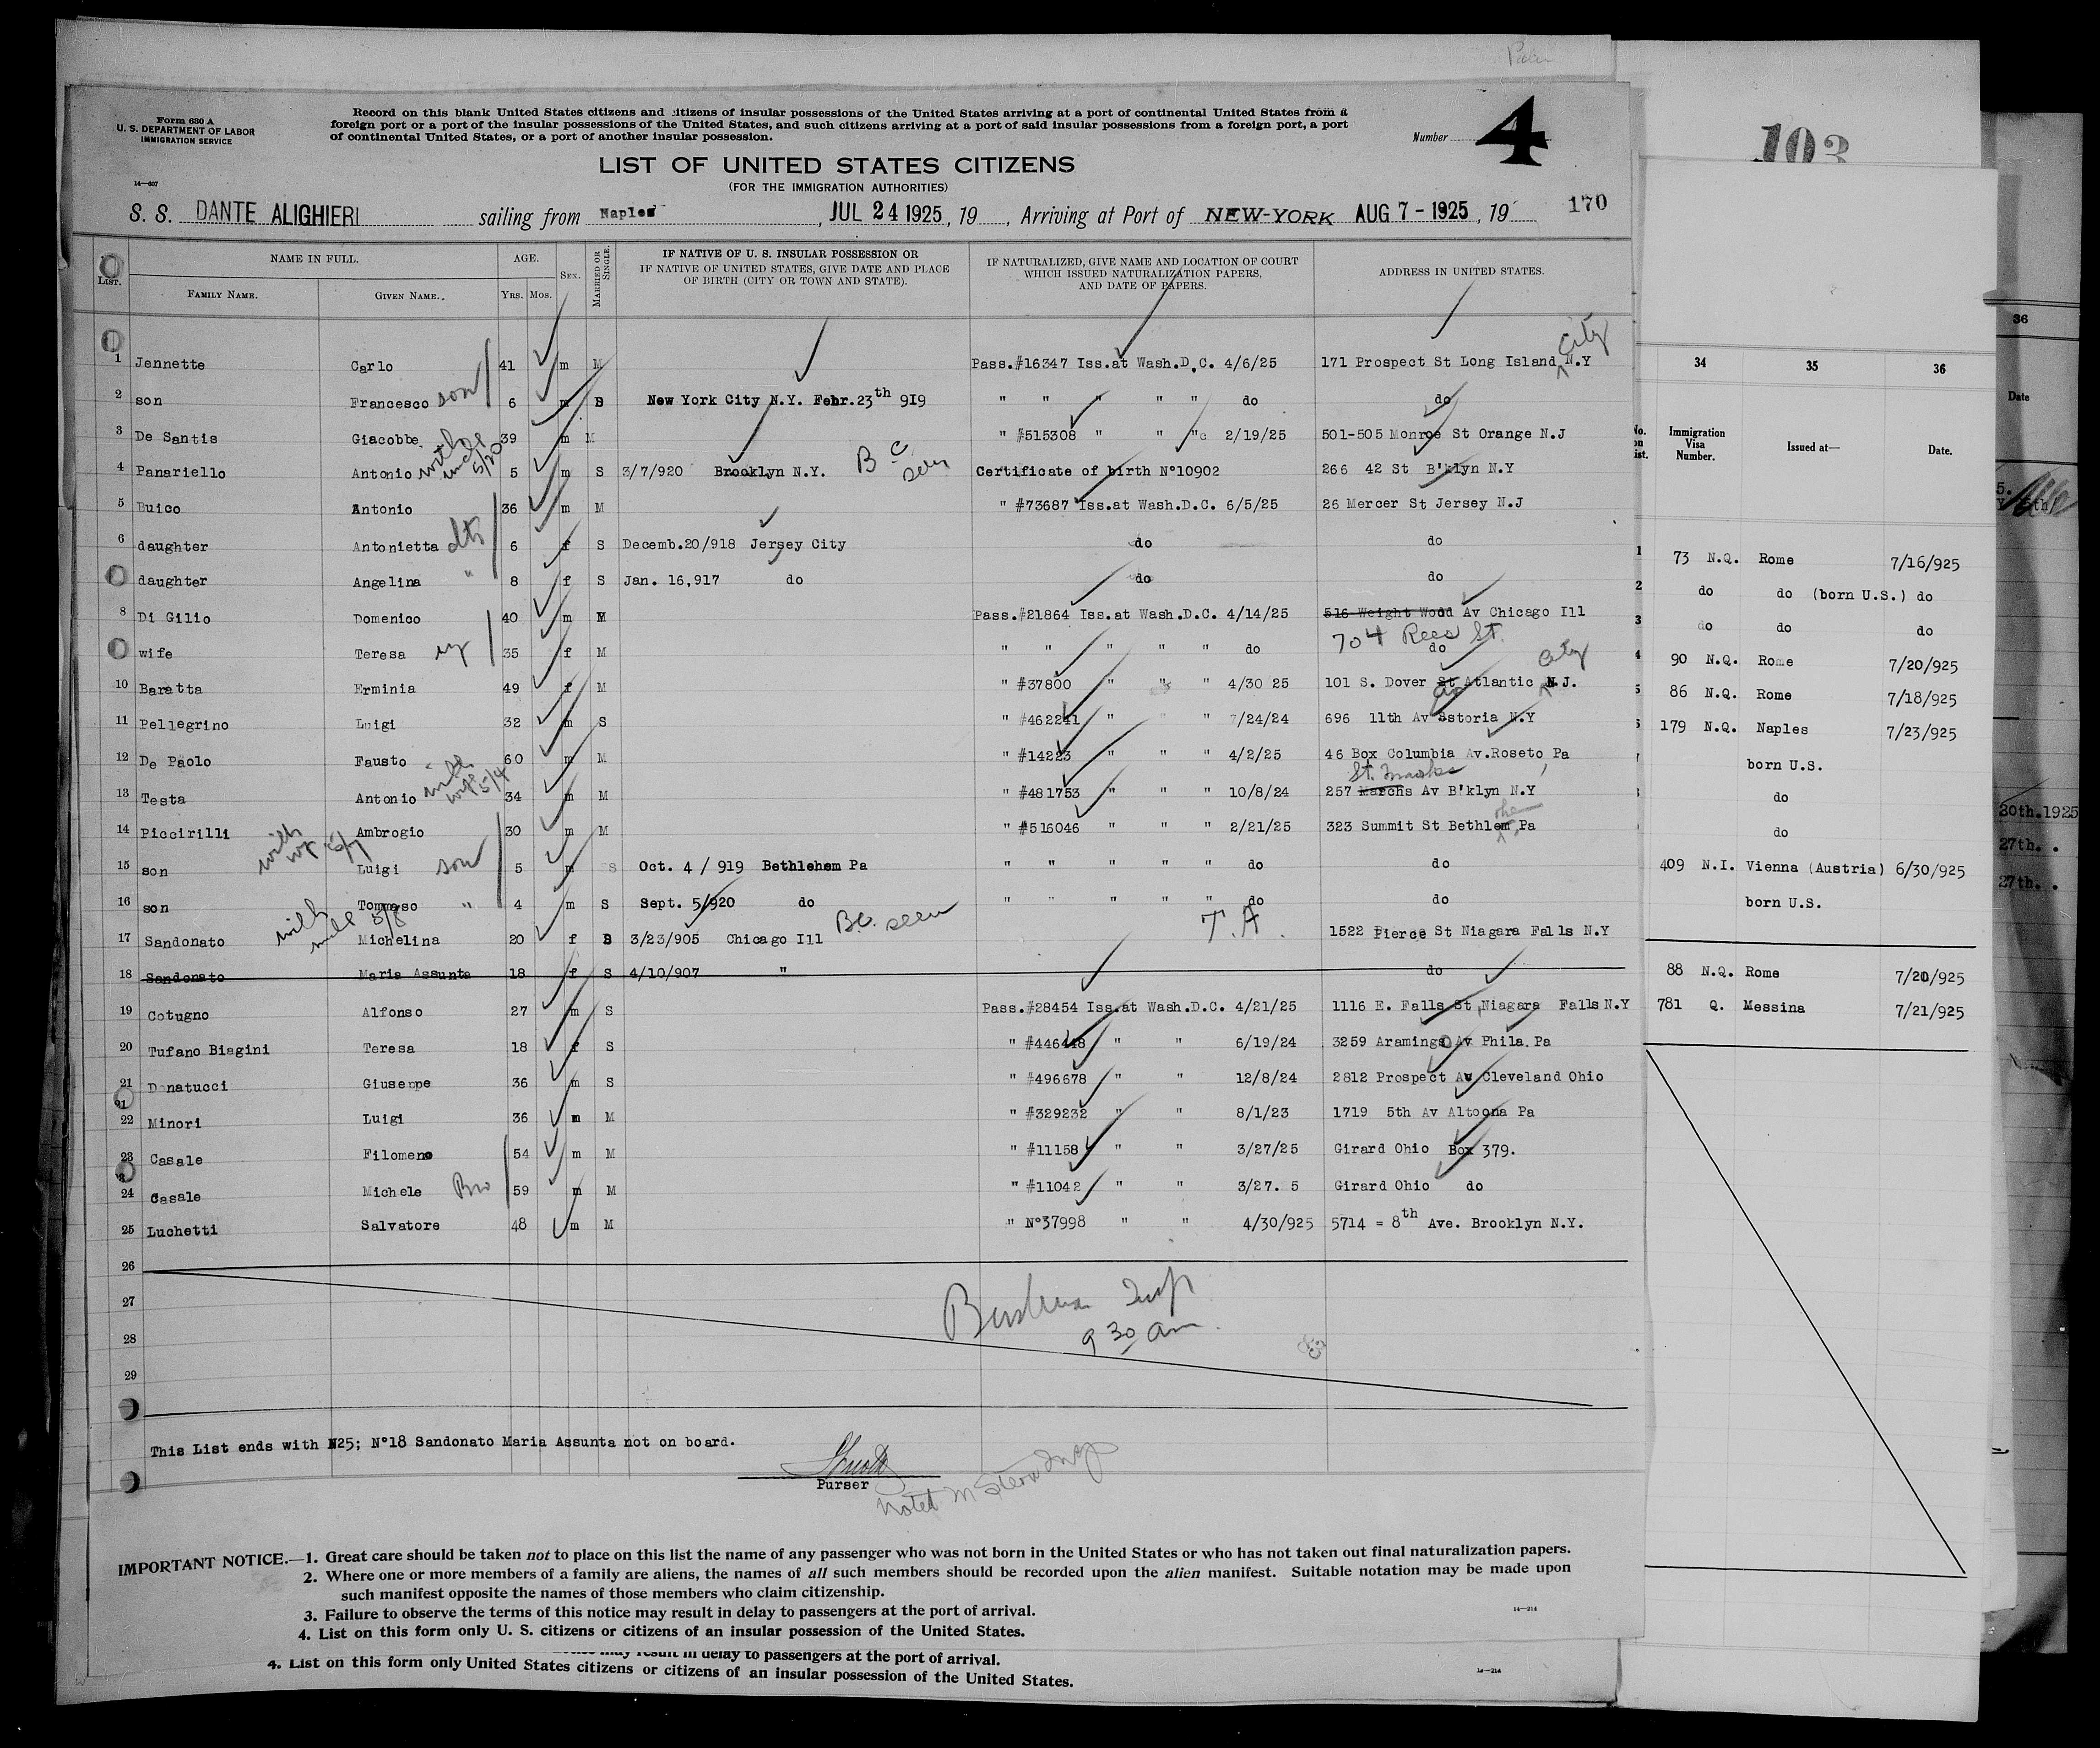 Form 630 A
U. S. DEPARTMENT OF LABOR
IMMIGRATION SERVICE
Record on this blank United States citizens and citizens of insular possessions of the United States arriving at a port of continental United States from a
foreign port or a port of the insular possessions of the United States, and such citizens arriving at a port of said insular possessions from a foreign port, a port
of continental United States, or a port of another insular possession.
Number 4
LIST OF UNITED STATES CITIZENS
(FOR THE IMMIGRATION AUTHORITIES)
14—607
S. S. DANTE ALIGHIERI sailing from Naples, JUL 24 1925, 19 , Arriving at Port of NEW-YORK AUG 7 - 1925, 19 170
LIST. NAME IN FULL. AGE. SEX. MARRIED OR SINGLE. IF NATIVE OF U. S. INSULAR POSSESSION OR IF NATIVE OF UNITED STATES, GIVE DATE AND PLACE OF BIRTH (CITY OR TOWN AND STATE). IF NATURALIZED, GIVE NAME AND LOCATION OF COURT WHICH ISSUED NATURALIZATION PAPERS, AND DATE OF PAPERS. ADDRESS IN UNITED STATES.
FAMILY NAME. GIVEN NAME. YRS. MOS.
1 Jennette Carlo 41 m M Pass.#16347 Iss.at Wash.D.C. 4/6/25 171 Prospect St Long Island City N.Y
2 son Francesco son 6 m S New York City N.Y. Febr.23th 919 " " " " " do do
3 De Santis Giacobbe 39 m M " #515308 " " "c 2/19/25 501-505 Monroe St Orange N.J
4 Panariello Antonio with uncle 5/20 5 m S 3/7/920 Brooklyn N.Y. B C seen Certificate of birth N°10902 266 42 St B'klyn N.Y
5 Buico Antonio 36 m M " #73687 Iss.at Wash.D.C. 6/5/25 26 Mercer St Jersey N.J
6 daughter Antonietta dtr 6 f S Decemb.20/918 Jersey City do do
daughter Angelina " 8 f S Jan. 16,917 do do do
8 Di Gilio Domenico 40 m M Pass.#21864 Iss.at Wash.D.C. 4/14/25 516 Weight Wood Av Chicago Ill
704 Rees St.
wife Teresa 35 f M " " " " " do do
10 Baratta Erminia 49 f M " #37800 " " " 4/30 25 101 S. Dover St Atlantic City N.J.
11 Pellegrino Luigi 32 m S " #462241 " " " 7/24/24 696 11th Av Astoria N.Y
12 De Paolo Fausto 60 m M " #14223 " " " 4/2/25 46 Box Columbia Av.Roseto Pa
13 Testa Antonio with wife 5/4 34 m M " #481753 " " " 10/8/24 257 Marchs St. Marks Av B'klyn N.Y
14 Piccirilli with Ambrogio 30 m M " #516046 " " " 2/21/25 323 Summit St Bethlem, Pa
15 son Luigi son 5 m S Oct. 4 / 919 Bethlehem Pa " " " " " do do
16 son Tommaso " 4 m S Sept. 5/920 do " " " " " do do
17 Sandonato with 5/8 Michelina 20 f S 3/23/905 Chicago Ill B.C. seen T. A. 1522 Pierce St Niagara Falls N.Y
18 Sandonato Maria Assunta 18 f S 4/10/907 " do
19 Cotugno Alfonso 27 m S Pass.#28454 Iss.at Wash.D.C. 4/21/25 1116 E. Falls St, Niagara Falls N.Y
20 Tufano Biagini Teresa 18 f S " #446448 " " 6/19/24 3259 Aramingo Av Phila. Pa
21 Donatucci Giuseppe 36 m S " #496678 " " 12/8/24 2812 Prospect Av Cleveland Ohio
22 Minori Luigi 36 m M " #329232 " " 8/1/23 1719 5th Av Altoona Pa
23 Casale Filomeno 54 m M " #11158 " " 3/27/25 Girard Ohio Box 379.
24 Casale Michele Bro 59 m M " #11042 " " 3/27. 5 Girard Ohio do
25 Luchetti Salvatore 48 m M " N°37998 " " 4/30/925 5714 = 8th Ave. Brooklyn N.Y.
26
27
28
29
Insp
9 30 am.
This List ends with N25; N°18 Sandonato Maria Assunta not on board.
Purser
Noted M Stern Insp
IMPORTANT NOTICE.—1. Great care should be taken not to place on this list the name of any passenger who was not born in the United States or who has not taken out final naturalization papers.
2. Where one or more members of a family are aliens, the names of all such members should be recorded upon the alien manifest. Suitable notation may be made upon
such manifest opposite the names of those members who claim citizenship.
3. Failure to observe the terms of this notice may result in delay to passengers at the port of arrival.
4. List on this form only U. S. citizens or citizens of an insular possession of the United States.
14—214
may result in delay to passengers at the port of arrival.
4. List on this form only United States citizens or citizens of an insular possession of the United States.
14—214
103
34 35 36
No. on list. Immigration Visa Number. Issued at— Date.
1 73 N.Q. Rome 7/16/925
2 do do (born U.S.) do
3 do do do
4 90 N.Q. Rome 7/20/925
5 86 N.Q. Rome 7/18/925
6 179 N.Q. Naples 7/23/925
born U.S.
do
do
409 N.I. Vienna (Austria) 6/30/925
born U.S.
88 N.Q. Rome 7/20/925
781 Q. Messina 7/21/925
36
Date
30th.1925
27th. .
27th. .